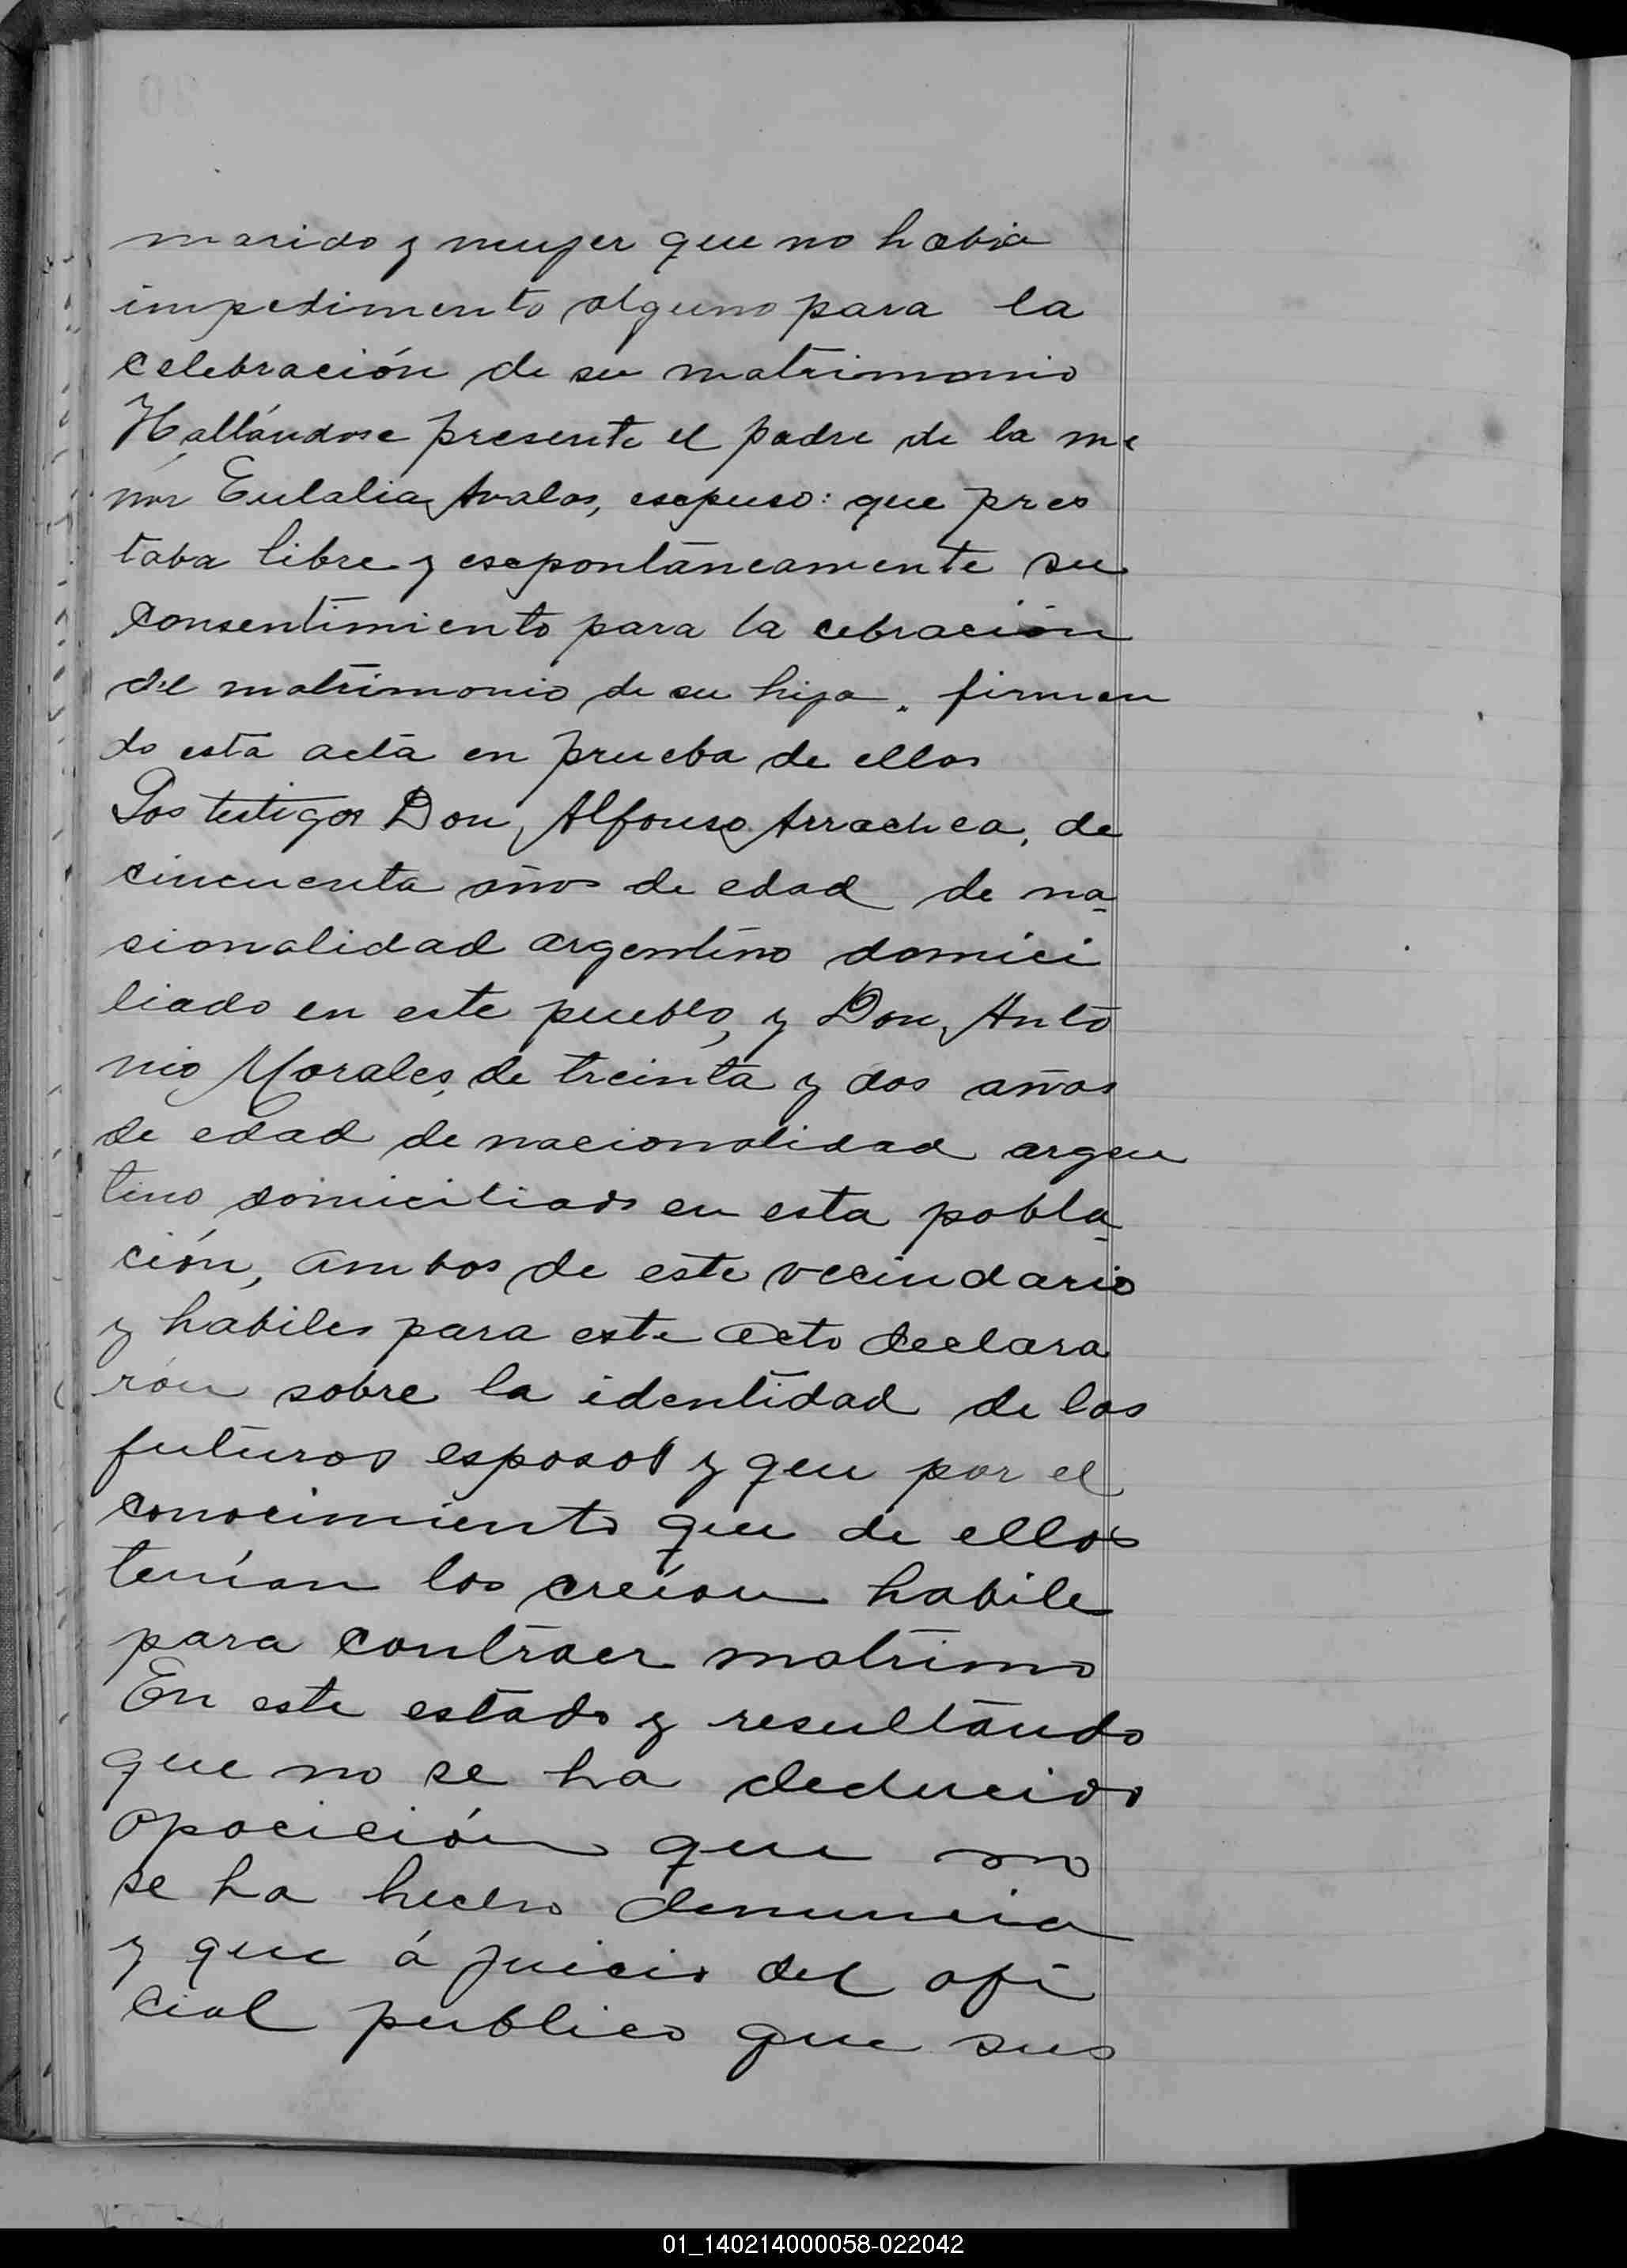 marido y mujer que no habia
impedimento alguno para la
celebración de su matrimonio
Hallándose presente el padre de la me
nor Eulalia Avalos, esepuso: que pres
taba libre y esepontaneamente su
consentimiento para la cebración
del matrimonio de su hija. firman
do esta acta en prueba de ellos
Los testigos Don Alfonso Arrachea, de
cincuenta años de edad de na
sionalidad argentino domici
liado en este pueblo, y Don Anto
nio Morales, de treinta y dos años
de edad de nacionalidad argen
tino domiciliado en esta pobla
ción, ambos de este vecindario
y habiles para este acto declara
rón sobre la identidad de los
futuros esposos y que por el
conocimiento que de ellos
tenían los creían habile
para contraer matrimo
En este estado y resultando
que no se ha deducido
opocición que no
se ha hecho denuncia
y que á juicio del ofi
cial publico que sus
01_140214000058-022042